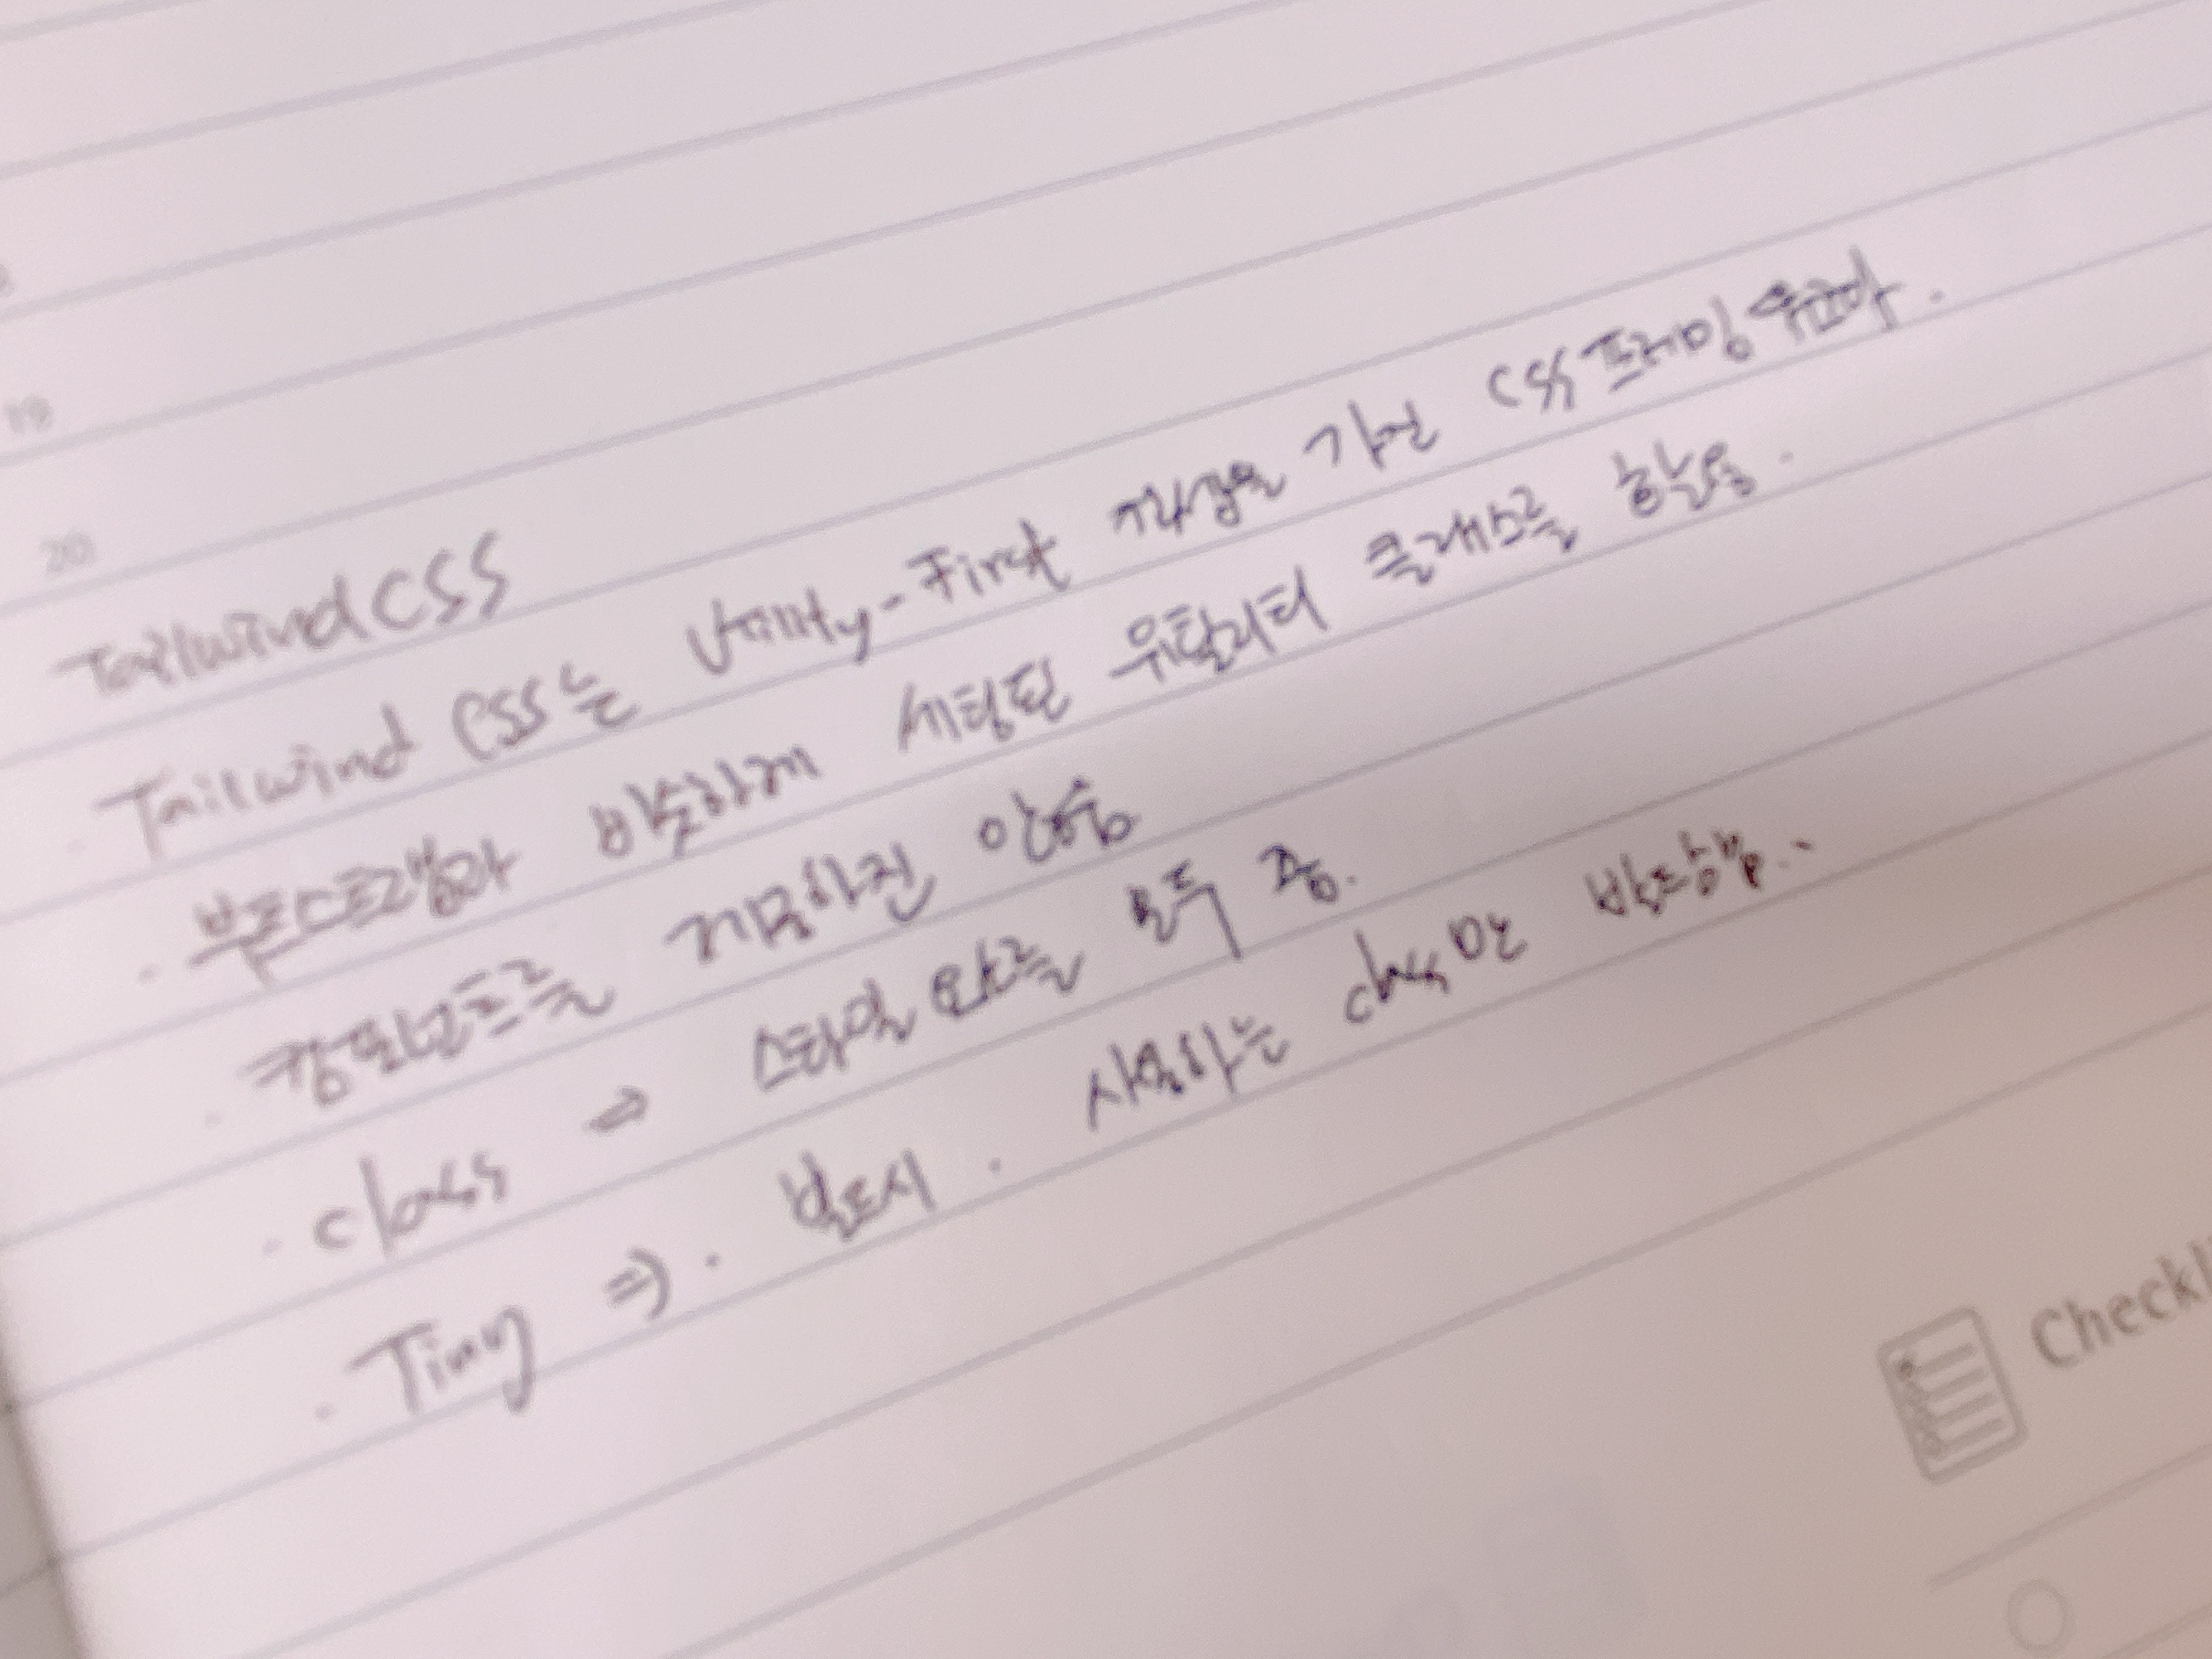 19
20
Tailwind CSS
· Tailwind CSS는 Utility-First 개념을 가진 CSS 프레임워크다.
· 부트스트랩과 비슷하게 세팅된 유틸리티 클래스를 활용.
· 컴포넌트를 제공하진 않음
· class ⇒ 스타일 만들 필요 중.
· Tiny ⇒ · 빌드시 . 사용하는 class만 반영함..
Checkli